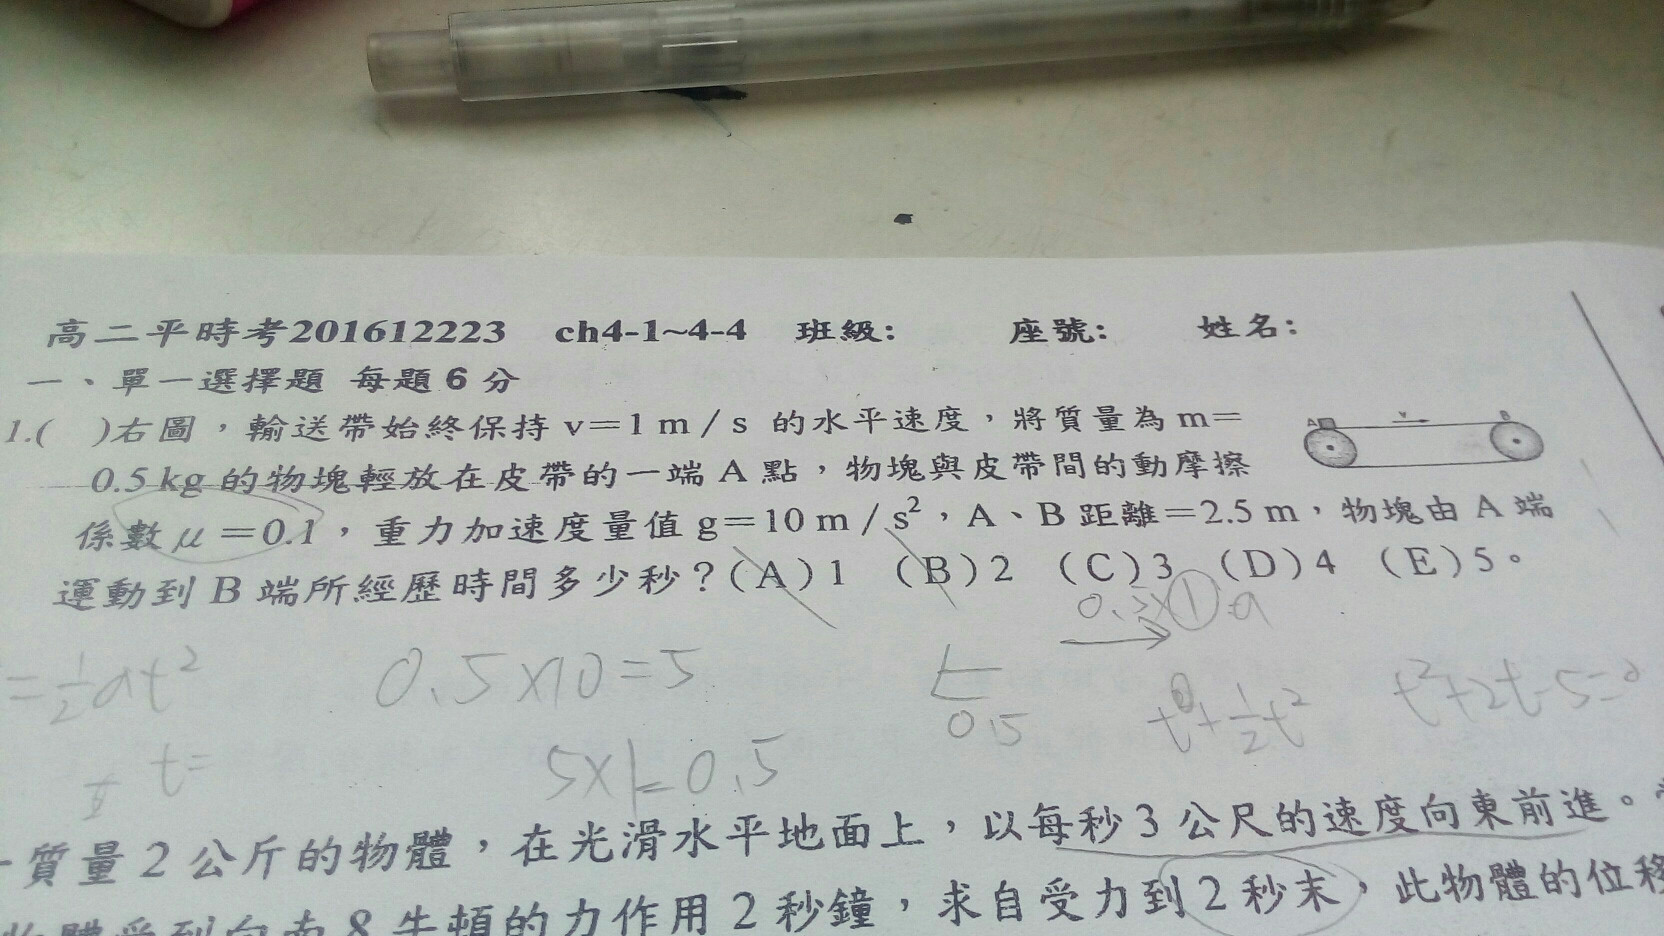 高二平時考201612223 ch4-1~4-4 班級: 座號: 姓名:
一、單一選擇題 每題6分
1.( )右圖，輸送帶始終保持 v=1 m/s 的水平速度，將質量為 m=
0.5 kg 的物塊輕放在皮帶的一端 A 點，物塊與皮帶間的動摩擦
係數 μ=0.1，重力加速度量值 g=10 m/s²，A、B 距離=2.5 m，物塊由 A 端
運動到 B 端所經歷時間多少秒？(A)1 (B)2 (C)3 (D)4 (E)5。
A v B
=½at² 0.5×10=5
t=
t²+2t-5=0
質量 2 公斤的物體，在光滑水平地面上，以每秒 3 公尺的速度向東前進。
物體受到向南 8 牛頓的力作用 2 秒鐘，求自受力到 2 秒末，此物體的位移